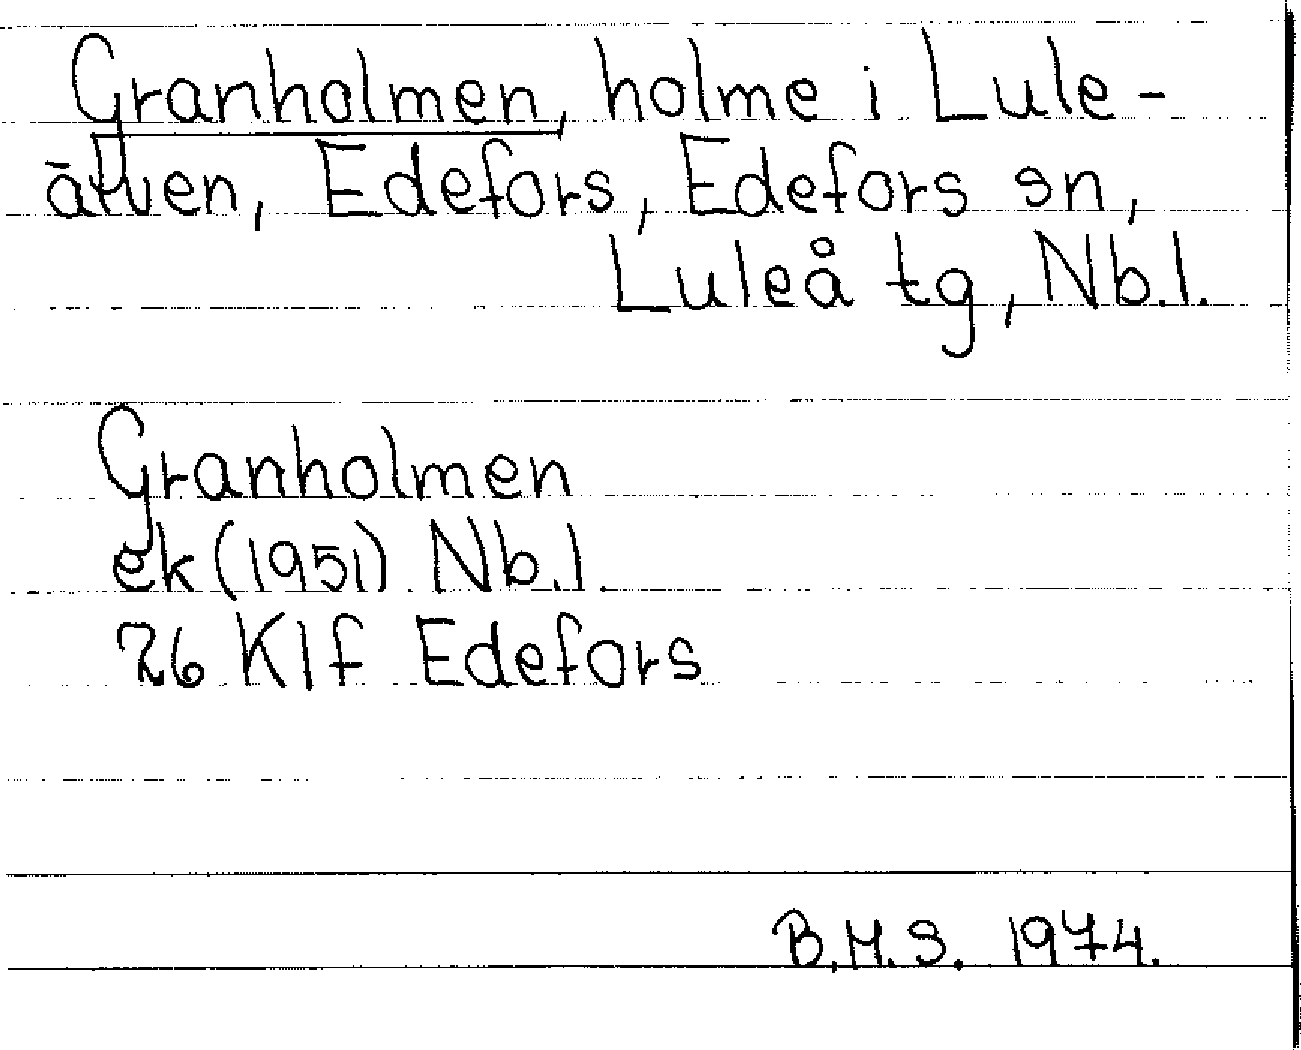 Granholmen, holme i Lule-
älven, Edefors, Edefors sn,
Luleå tg, Nb.l.
Granholmen
ek (1951) Nb.l.
26 Klf Edefors
B.M.S. 1974.